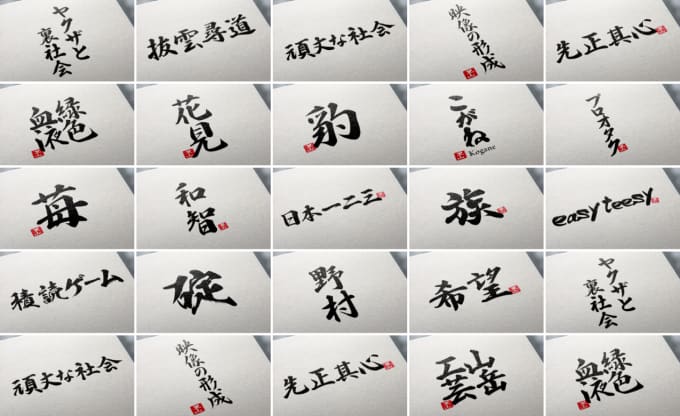 ヤクザと
裏社会
抜雲尋道
頑丈な社会
映像の形成
先正其心
緑色
血液
花見
豹
こがね
Kogane
プロオタク
苺
和智
日本一二三
族
easy teesy
積読ゲーム
碇
野村
希望
ヤクザと
裏社会
頑丈な社会
映像の形成
先正其心
山岳
工芸
緑色
血液